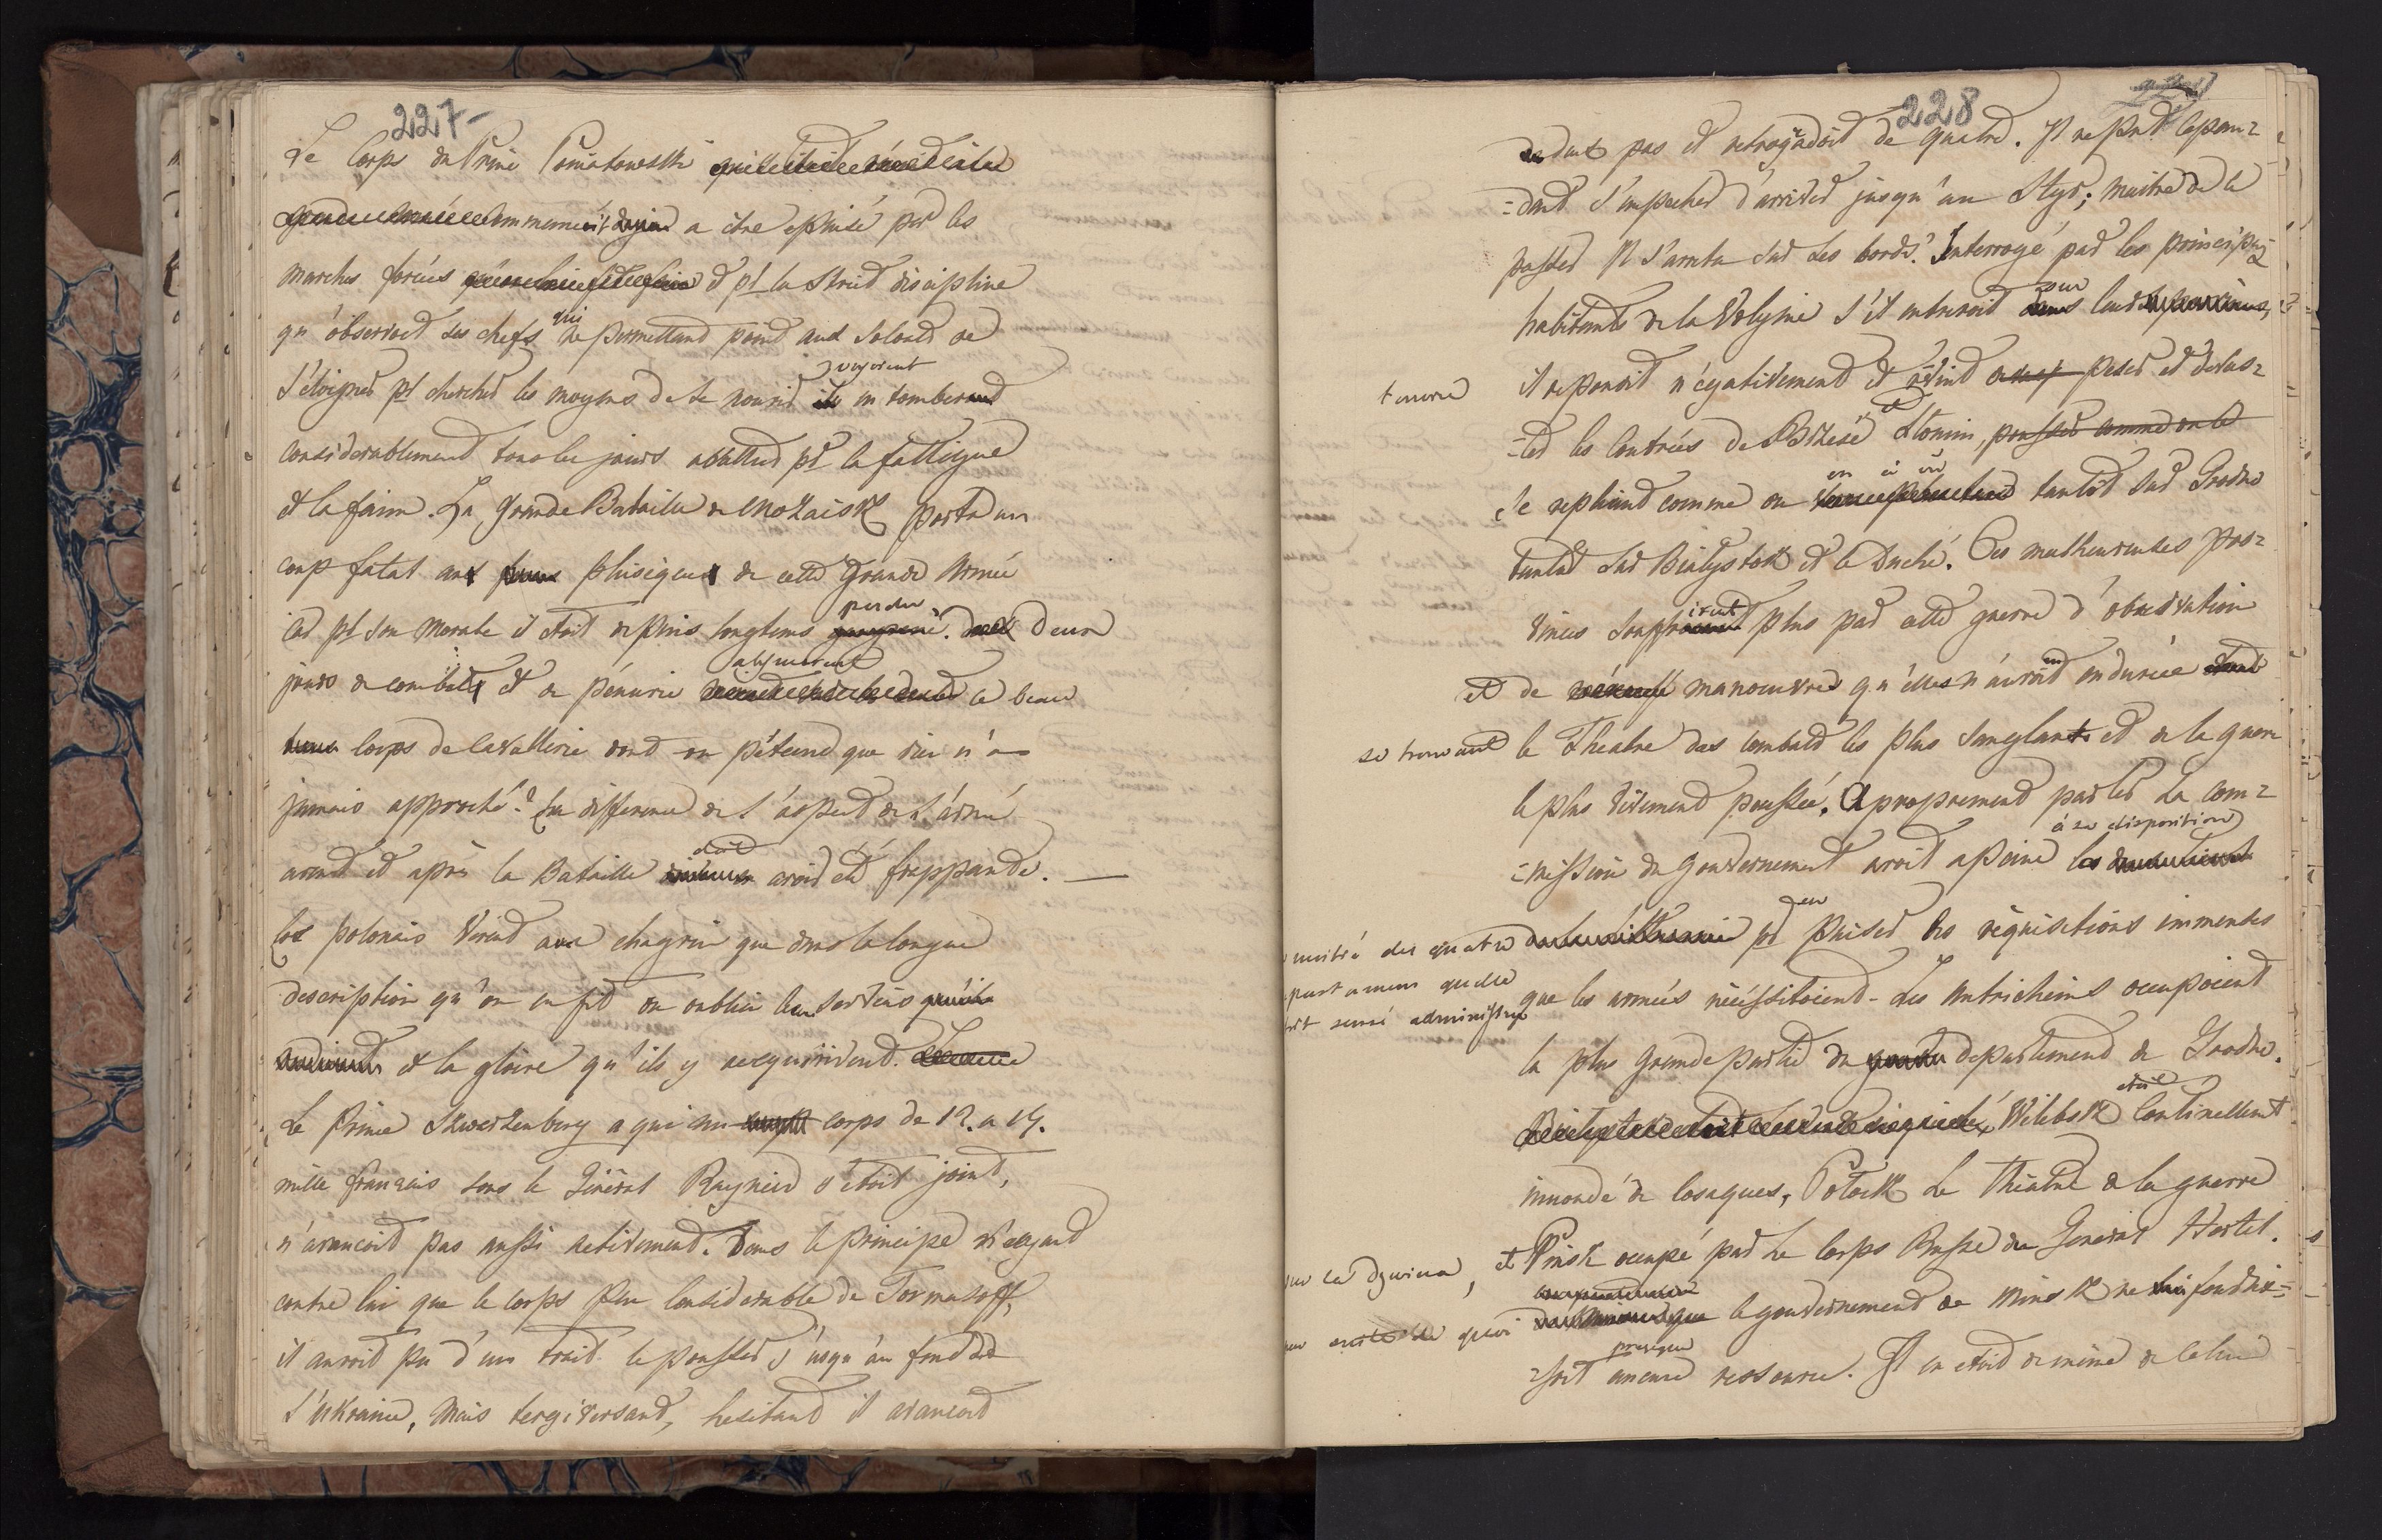 227-
Le Corps du Prince Poniatowski
commencoit deja a etre epuisé par les
marches forcées et pt la Strict discipline
qu'observoit ses chefs qui ne permettant point aux Soldats de
s'éloigner pt chercher les moyens de se nourir voyoient en tomber
considerablement tous les jours abattus pr la fattigue
et la faim. La grande Bataille de Mozaisk porta un
coup fatal au phisique de cette grande Armée
car pt son Morale il étoit depuis longtems perdu. Deux
jours de combats et de pénurie abymerent ce beau
corps de Cavallerie dont on pretend que rien n'a
jamais approché. La difference de l'aspect de l'armée
avant et après la Bataille avoit été frappande. —
Les polonais virent avec chagrin que dans la longue
description qu'on en fit on oublia leur services
et la gloire qu'ils y acquirrirent.
Le Prince Schwarzenberg a qui un corps de 12. a 15.
mille français sous le Général Raynier s'étoit joint,
n'avancoit pas aussi activement. Dans le principe n'ayant
contre lui que le corps peu Considerable de Tormasoff,
il auroit pu d'un trait le pousser j'usqu'au fond de
l'Ukraine, Mais tergiversant, hesitant il avancoit
228
de dix pas et retrogradoit de quatre. Il ne put cepen=
=dant s'empecher d'arriver jusqu'au Styr; maitre de le
passer Il s'arreta sur ses bords. Interrogé par les principaux
habitants de la Volynie s'il entreroit sur leurs
il repondit n'égativement et vint peser et devas=
=ter les Contrées de Brzesc et Slonim, pousser comme on le
se repliant comme on a vu tantôt sur Grodno
tantôt sur Bialystok et le Duché. Ces malheureuses pro=
vinces souffroient plus par cette guerre d'observation
et de manoeuvres qu'elles n'auroient endurée
se trouvant le Theatre des combats les plus sanglants et de la guerre
la plus vivement poussée. A proprement parler La com=
=mission du gouvernement avoit a peine à sa disposition
moitié des quatre departemens qu'elle etoit sensé administrer pr en puiser les réquisitions immenses
que les armées nécessitoient - Les Autrichiens occupoient
la plus grande partie du departement de Grodno.
Witebsk étoit Continellement
innondé de Cosaques, Polock Le Théatre de la guerre
sur la Dzwina, et Pinsk occupé par Le Corps Russe du General Hertel.
le gouvernement de Minsk ne fournis=
=soit presque aucune ressource. Il en étoit de même de celui